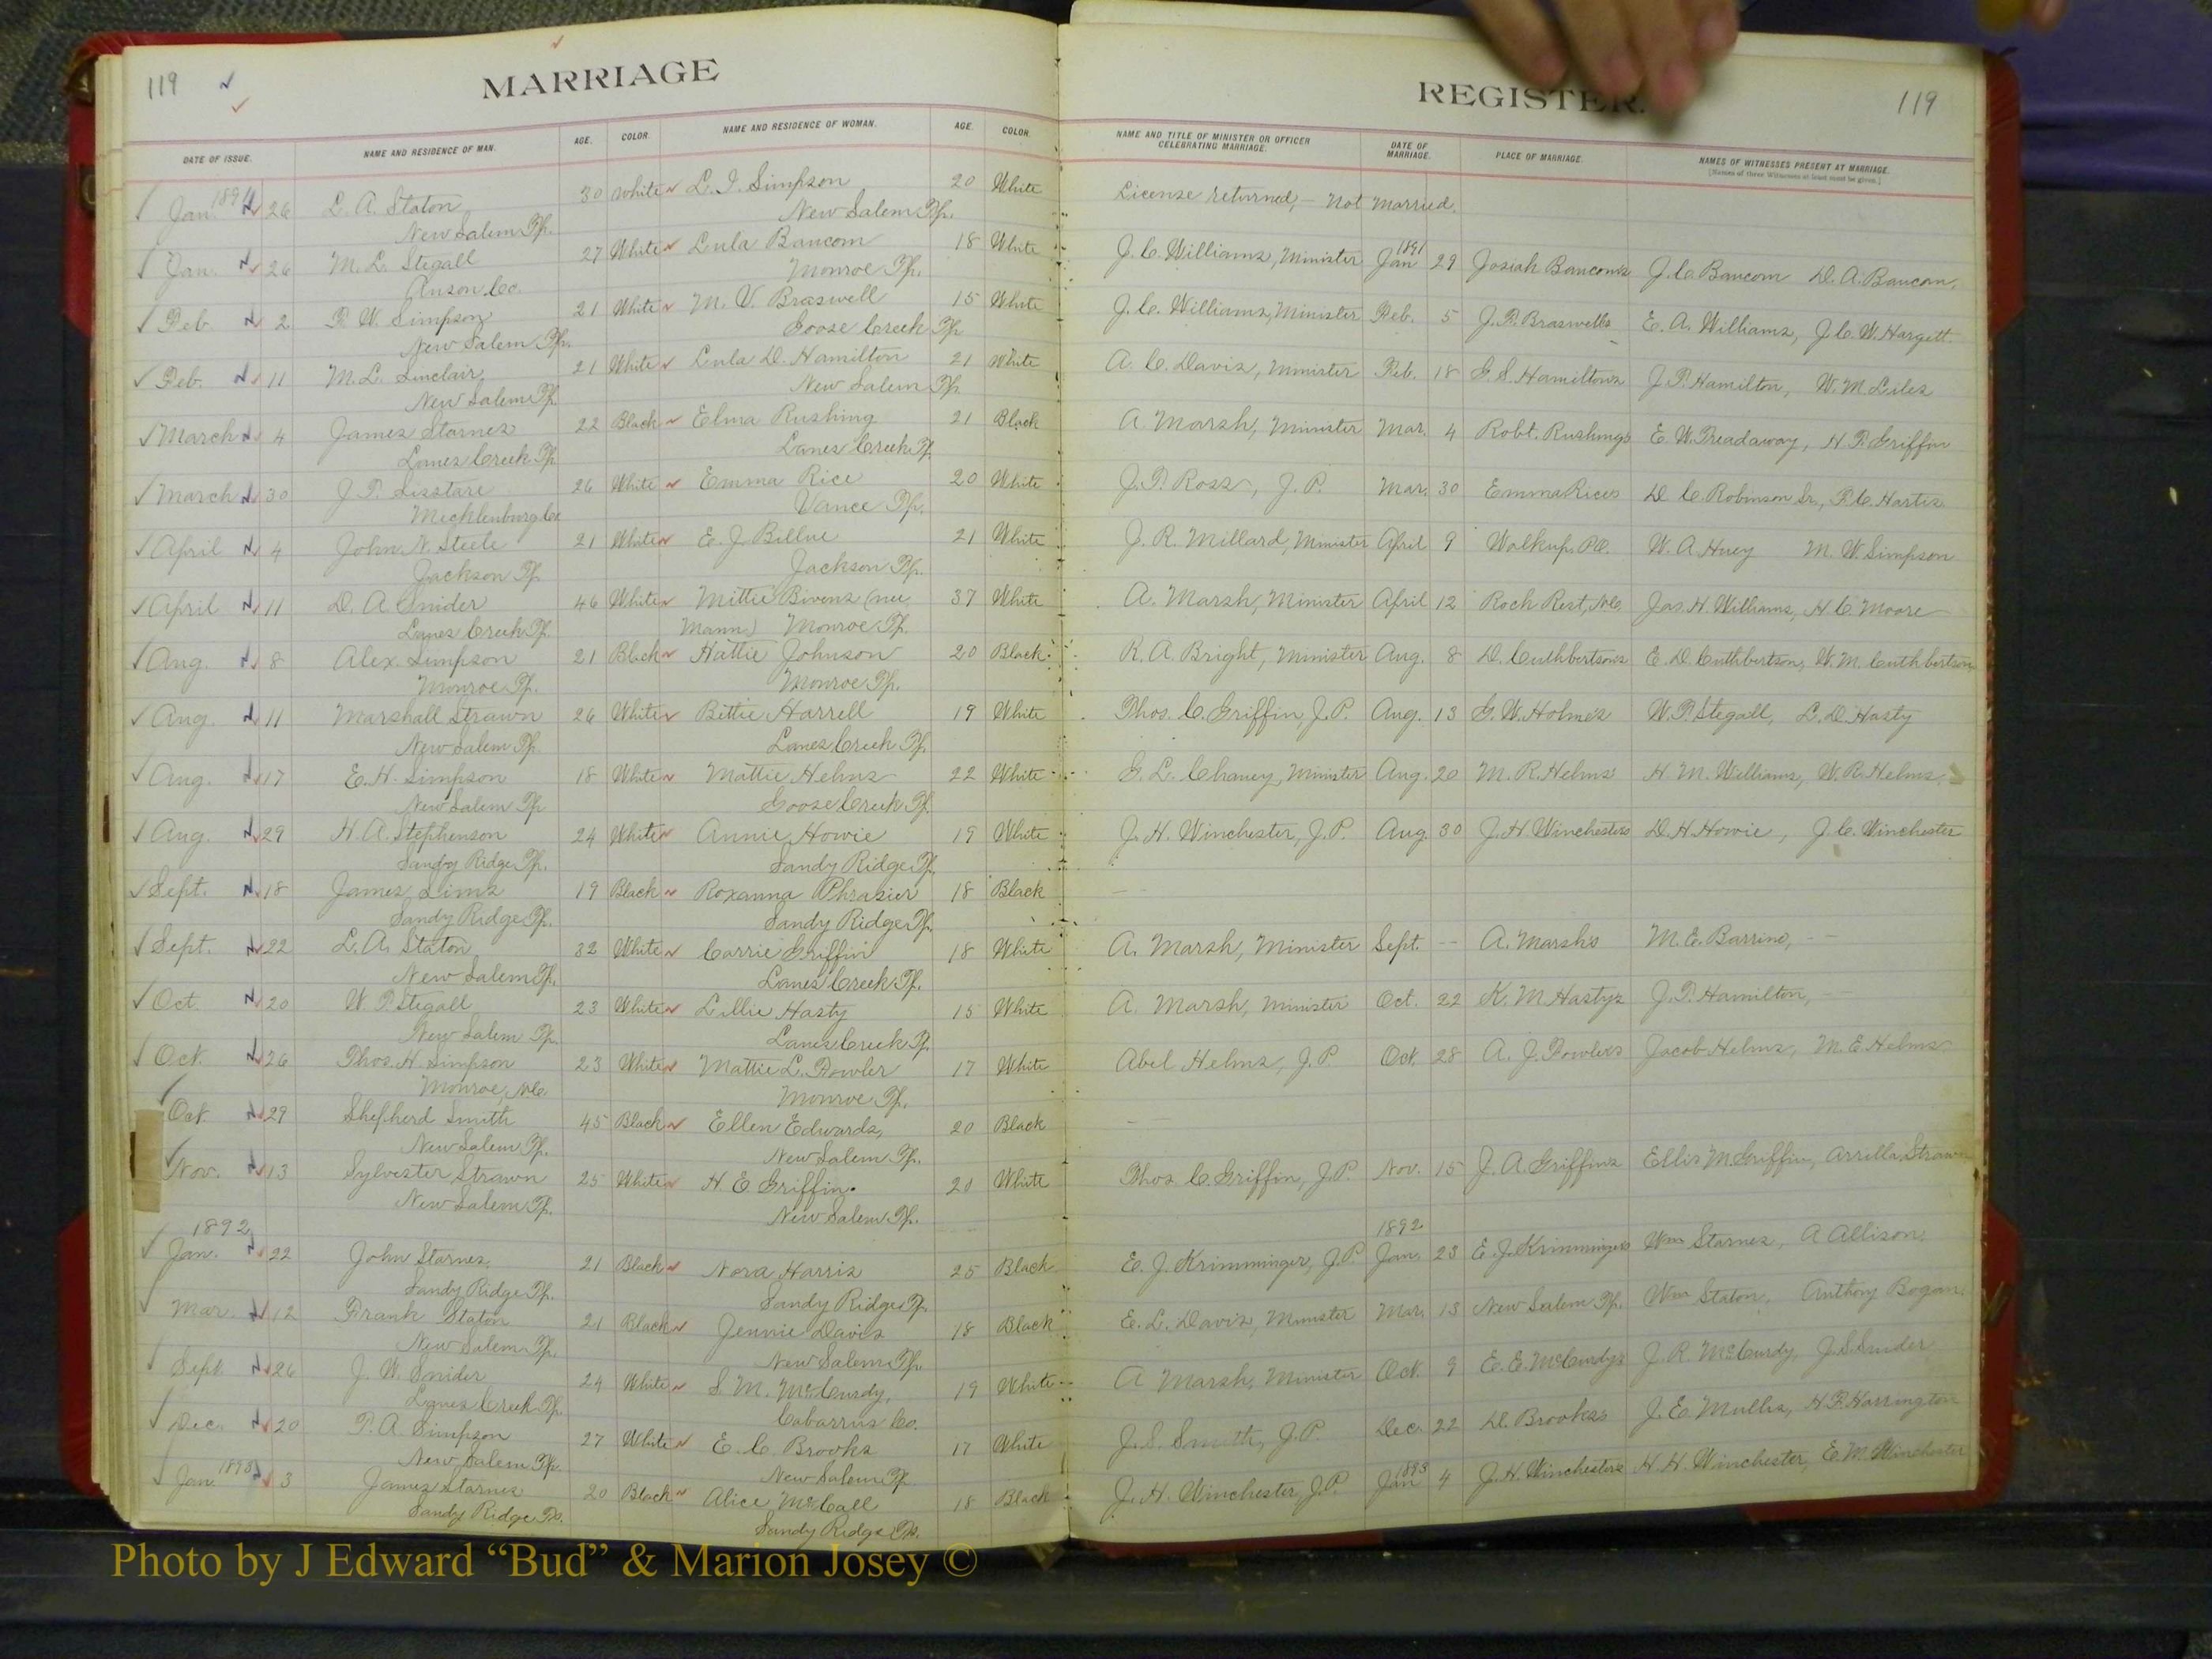 119
MARRIAGE
REGISTER.
119
DATE OF ISSUE.
NAME AND RESIDENCE OF MAN.
AGE.
COLOR.
NAME AND RESIDENCE OF WOMAN.
AGE.
COLOR.
NAME AND TITLE OF MINISTER OR OFFICER
CELEBRATING MARRIAGE.
DATE OF
MARRIAGE.
PLACE OF MARRIAGE.
NAMES OF WITNESSES PRESENT AT MARRIAGE.
[Names of three Witnesses at least must be given.]
1891
Jan. 26 L. A. Staton 30 White L. J. Simpson 20 White License returned, - Not Married.
New Salem Tp. New Salem Tp.
Jan. 26 M. L. Stegall 27 White Lula Baucom 18 White J. C. Williams, Minister 1891 Jan 29 Josiah Baucom's J. C. Baucom D. A. Baucom,
Anson Co. Monroe Tp.
Feb. 2 F. W. Simpson 21 White M. V. Braswell 15 White J. C. Williams, Minister Feb. 5 J. T. Braswell's E. A. Williams, J. C. W. Hargett
New Salem Tp. Goose Creek Tp
Feb. 11 M. L. Sinclair, 21 White Lula D. Hamilton 21 White A. C. Davis, Minister Feb. 18 G. S. Hamiltons J. T. Hamilton, W. M. Liles
New Salem Tp. New Salem Tp.
March 4 James Starnes 22 Black Elma Rushing 21 Black A. Marsh, Minister Mar. 4 Robt. Rushings E. W. Treadaway, H. T. Griffin
Lanes Creek Tp Lanes Creek Tp.
March 30 J. P. Sisstare 26 White Emma Rice 20 White J. P. Ross, J. P. Mar. 30 Emma Rices D. C. Robinson Sr., F. C. Hartis
Mecklenburg Co Vance Tp.
April 4 John N. Steele 21 White E. J. Billue 21 White J. R. Millard, Minister April 9 Walkup, P.O. W. A. Huey M. W. Simpson
Jackson Tp Jackson Tp.
April 11 D. A. Snider 46 White Mittie Bivens (nee 37 White A. Marsh, Minister April 12 Rock Rest, N.C. Jas. H. Williams, H. C. Moore
Lanes Creek Tp. Mann) Monroe Tp.
Aug. 8 Alex. Simpson 21 Black Hattie Johnson 20 Black R. A. Bright, Minister Aug. 8 D. Cuthbertsons E. D. Cuthbertson, W. M. Cuthbertson
Monroe Tp. Monroe Tp.
Aug. 11 Marshall Strawn 26 White Bittie Harrell 19 White Thos. C. Griffin, J. P. Aug. 13 G. W. Holmes W. P. Stegall, L. D. Hasty
New Salem Tp. Lanes Creek Tp.
Aug. 17 E. H. Simpson 18 White Mattie Helms 22 White G. L. Chaney, Minister Aug. 20 M. R. Helms' H. M. Williams, W. R. Helms.
New Salem Tp Goose Creek Tp.
Aug. 29 H. A. Stephenson 24 White Annie Howie 19 White J. H. Winchester, J. P. Aug. 30 J. H. Winchesters D. H. Howie, J. C. Winchester
Sandy Ridge Tp. Sandy Ridge Tp.
Sept. 18 James Sims 19 Black Roxanna Phrasier 18 Black - -
Sandy Ridge Tp. Sandy Ridge Tp.
Sept. 22 L. A. Staton 32 White Carrie Griffin 18 White A. Marsh, Minister Sept. -- A. Marsh's M. E. Barrino, - -
New Salem Tp. Lanes Creek Tp.
Oct. 20 W. P. Stegall 23 White Lillie Hasty 15 White A. Marsh, Minister Oct. 22 K. M. Hastys J. T. Hamilton, --
New Salem Tp. Lanes Creek Tp.
Oct. 26 Thos. H. Simpson 23 White Mattie L. Fowler 17 White Abel Helms, J. P. Oct. 28 A. J. Fowlers Jacob Helms, M. E. Helms
Monroe, N.C. Monroe Tp.
Oct. 29 Shepherd Smith 45 Black Ellen Edwards, 20 Black -
New Salem Tp. New Salem Tp.
Nov. 13 Sylvester Strawn 25 White H. E. Griffin. 20 White Thos. C. Griffin, J. P. Nov. 15 J. A. Griffins Ellis M. Griffin, Arrilla Strawn
New Salem Tp. New Salem Tp.
1892 1892
Jan. 22 John Starnes, 21 Black Nora Harris 25 Black E. J. Krimminger, J. P. Jan. 23 E. J. Krimmingers Wm Starnes, A Allison.
Sandy Ridge Tp. Sandy Ridge Tp.
Mar. 12 Frank Staton 21 Black Jennie Davis 18 Black E. L. Davis, Minister Mar. 13 New Salem Tp. Wm Staton, Anthony Bogan.
New Salem Tp. New Salem Tp.
Sept. 26 J. W. Snider 24 White S. M. McCurdy, 19 White A Marsh, Minister Oct. 9 E. E. McCurdys J. R. McCurdy, J. S. Snider
Lanes Creek Tp. Cabarrus Co.
Dec. 20 T. A. Simpson 27 White E. C. Brooks 17 White J. S. Smith, J. P. Dec. 22 D. Brooks's J. E. Mullis, H. F. Harrington
New Salem Tp. New Salem Tp
1893 1893
Jan. 3 James Starnes 20 Black Alice McCall 18 Black J. H. Winchester, J. P. Jan 4 J. H. Winchesters H. H. Winchester, E. M. Winchester
Sandy Ridge Tp. Sandy Ridge Tp.
Photo by J Edward “Bud” & Marion Josey ©